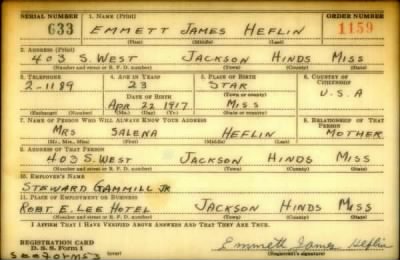 SERIAL NUMBER 1. NAME (Print) ORDER NUMBER
633 EMMETT JAMES HEFLIN 1159
(First) (Middle) (Last)
2. ADDRESS (Print)
403 S. WEST JACKSON HINDS MISS
(Number and street or R. F. D. number) (Town) (County) (State)
3. TELEPHONE 4. AGE IN YEARS 5. PLACE OF BIRTH 6. COUNTRY OF CITIZENSHIP
2-1189 23 STAR
DATE OF BIRTH (Town or county)
APR 22 1917 MISS U.S.A
(Exchange) (Number) (Mo.) (Day) (Yr.) (State or country)
7. NAME OF PERSON WHO WILL ALWAYS KNOW YOUR ADDRESS 8. RELATIONSHIP OF THAT PERSON
MRS SALENA HEFLIN MOTHER
(Mr., Mrs., Miss) (First) (Middle) (Last)
9. ADDRESS OF THAT PERSON
403 S. WEST JACKSON HINDS MISS
(Number and street or R. F. D. number) (Town) (County) (State)
10. EMPLOYER'S NAME
STEWARD GAMMILL JR
11. PLACE OF EMPLOYMENT OR BUSINESS
ROBT E. LEE HOTEL JACKSON HINDS MISS
(Number and street or R. F. D. number) (Town) (County) (State)
I AFFIRM THAT I HAVE VERIFIED ABOVE ANSWERS AND THAT THEY ARE TRUE.
REGISTRATION CARD
D. S. S. Form 1 Emmett James Heflin
(over) (Registrant's signature)